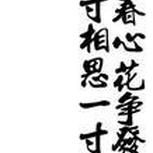 春心花爭發
寸相思一寸